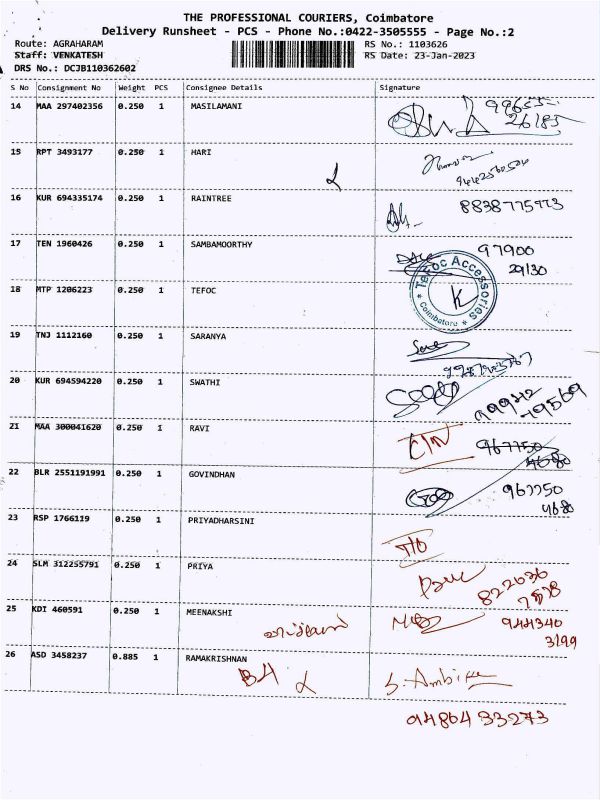 THE PROFESSIONAL COURIERS, Coimbatore
Delivery Runsheet - PCS - Phone No.:0422-3505555 - Page No.:2
Route: AGRAHARAM RS No.: 1103626
Staff: VENKATESH RS Date: 23-Jan-2023
DRS No.: DCJB110362602
S No Consignment No Weight PCS Consignee Details Signature
14 MAA 297402356 0.250 1 MASILAMANI
26185
15 RPT 3493177 0.250 1 HARI
16 KUR 694335174 0.250 1 RAINTREE
17 TEN 1960426 0.250 1 SAMBAMOORTHY 97900
29130
18 MTP 1206223 0.250 1 TEFOC Tefoc Accessories * Coimbatore *
19 TNJ 1112160 0.250 1 SARANYA
20 KUR 694594220 0.250 1 SWATHI
21 MAA 300041620 0.250 1 RAVI 967750
4680
22 BLR 2551191991 0.250 1 GOVINDHAN 967750
4680
23 RSP 1766119 0.250 1 PRIYADHARSINI
24 SLM 312255791 0.250 1 PRIYA 822036
25 KDI 460591 0.250 1 MEENAKSHI 944340
3199
26 ASD 3458237 0.885 1 RAMAKRISHNAN
S. Ambika
94864 33273